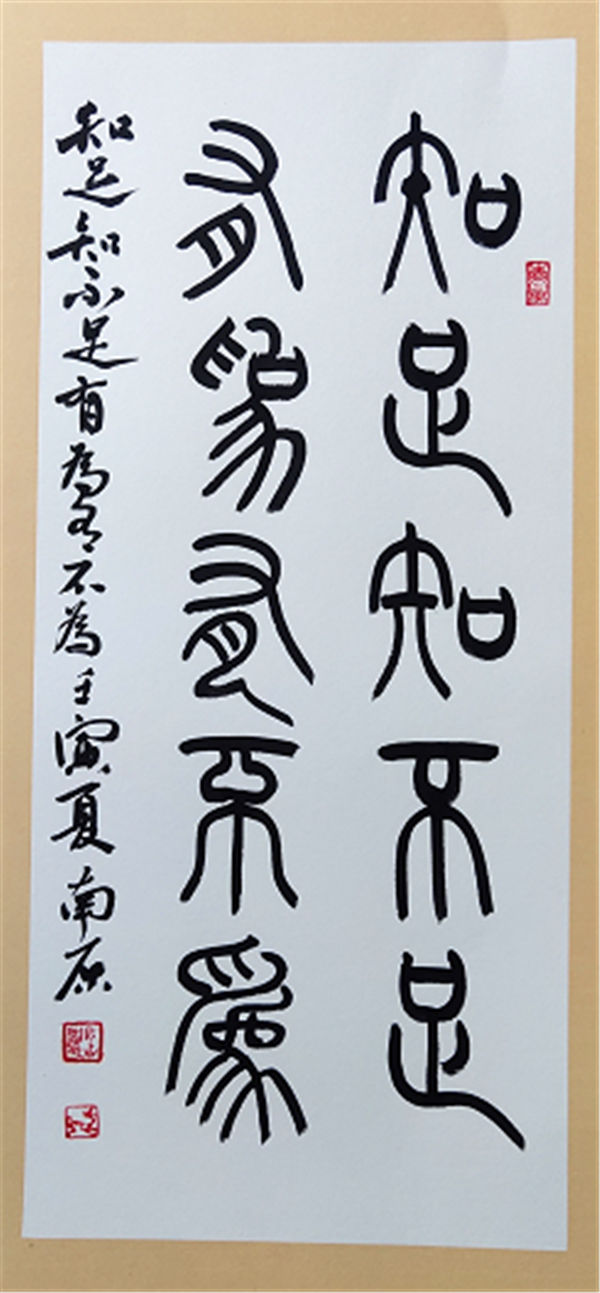 知足知不足
有為有不為
知足知不足有為有不為壬寅夏南原